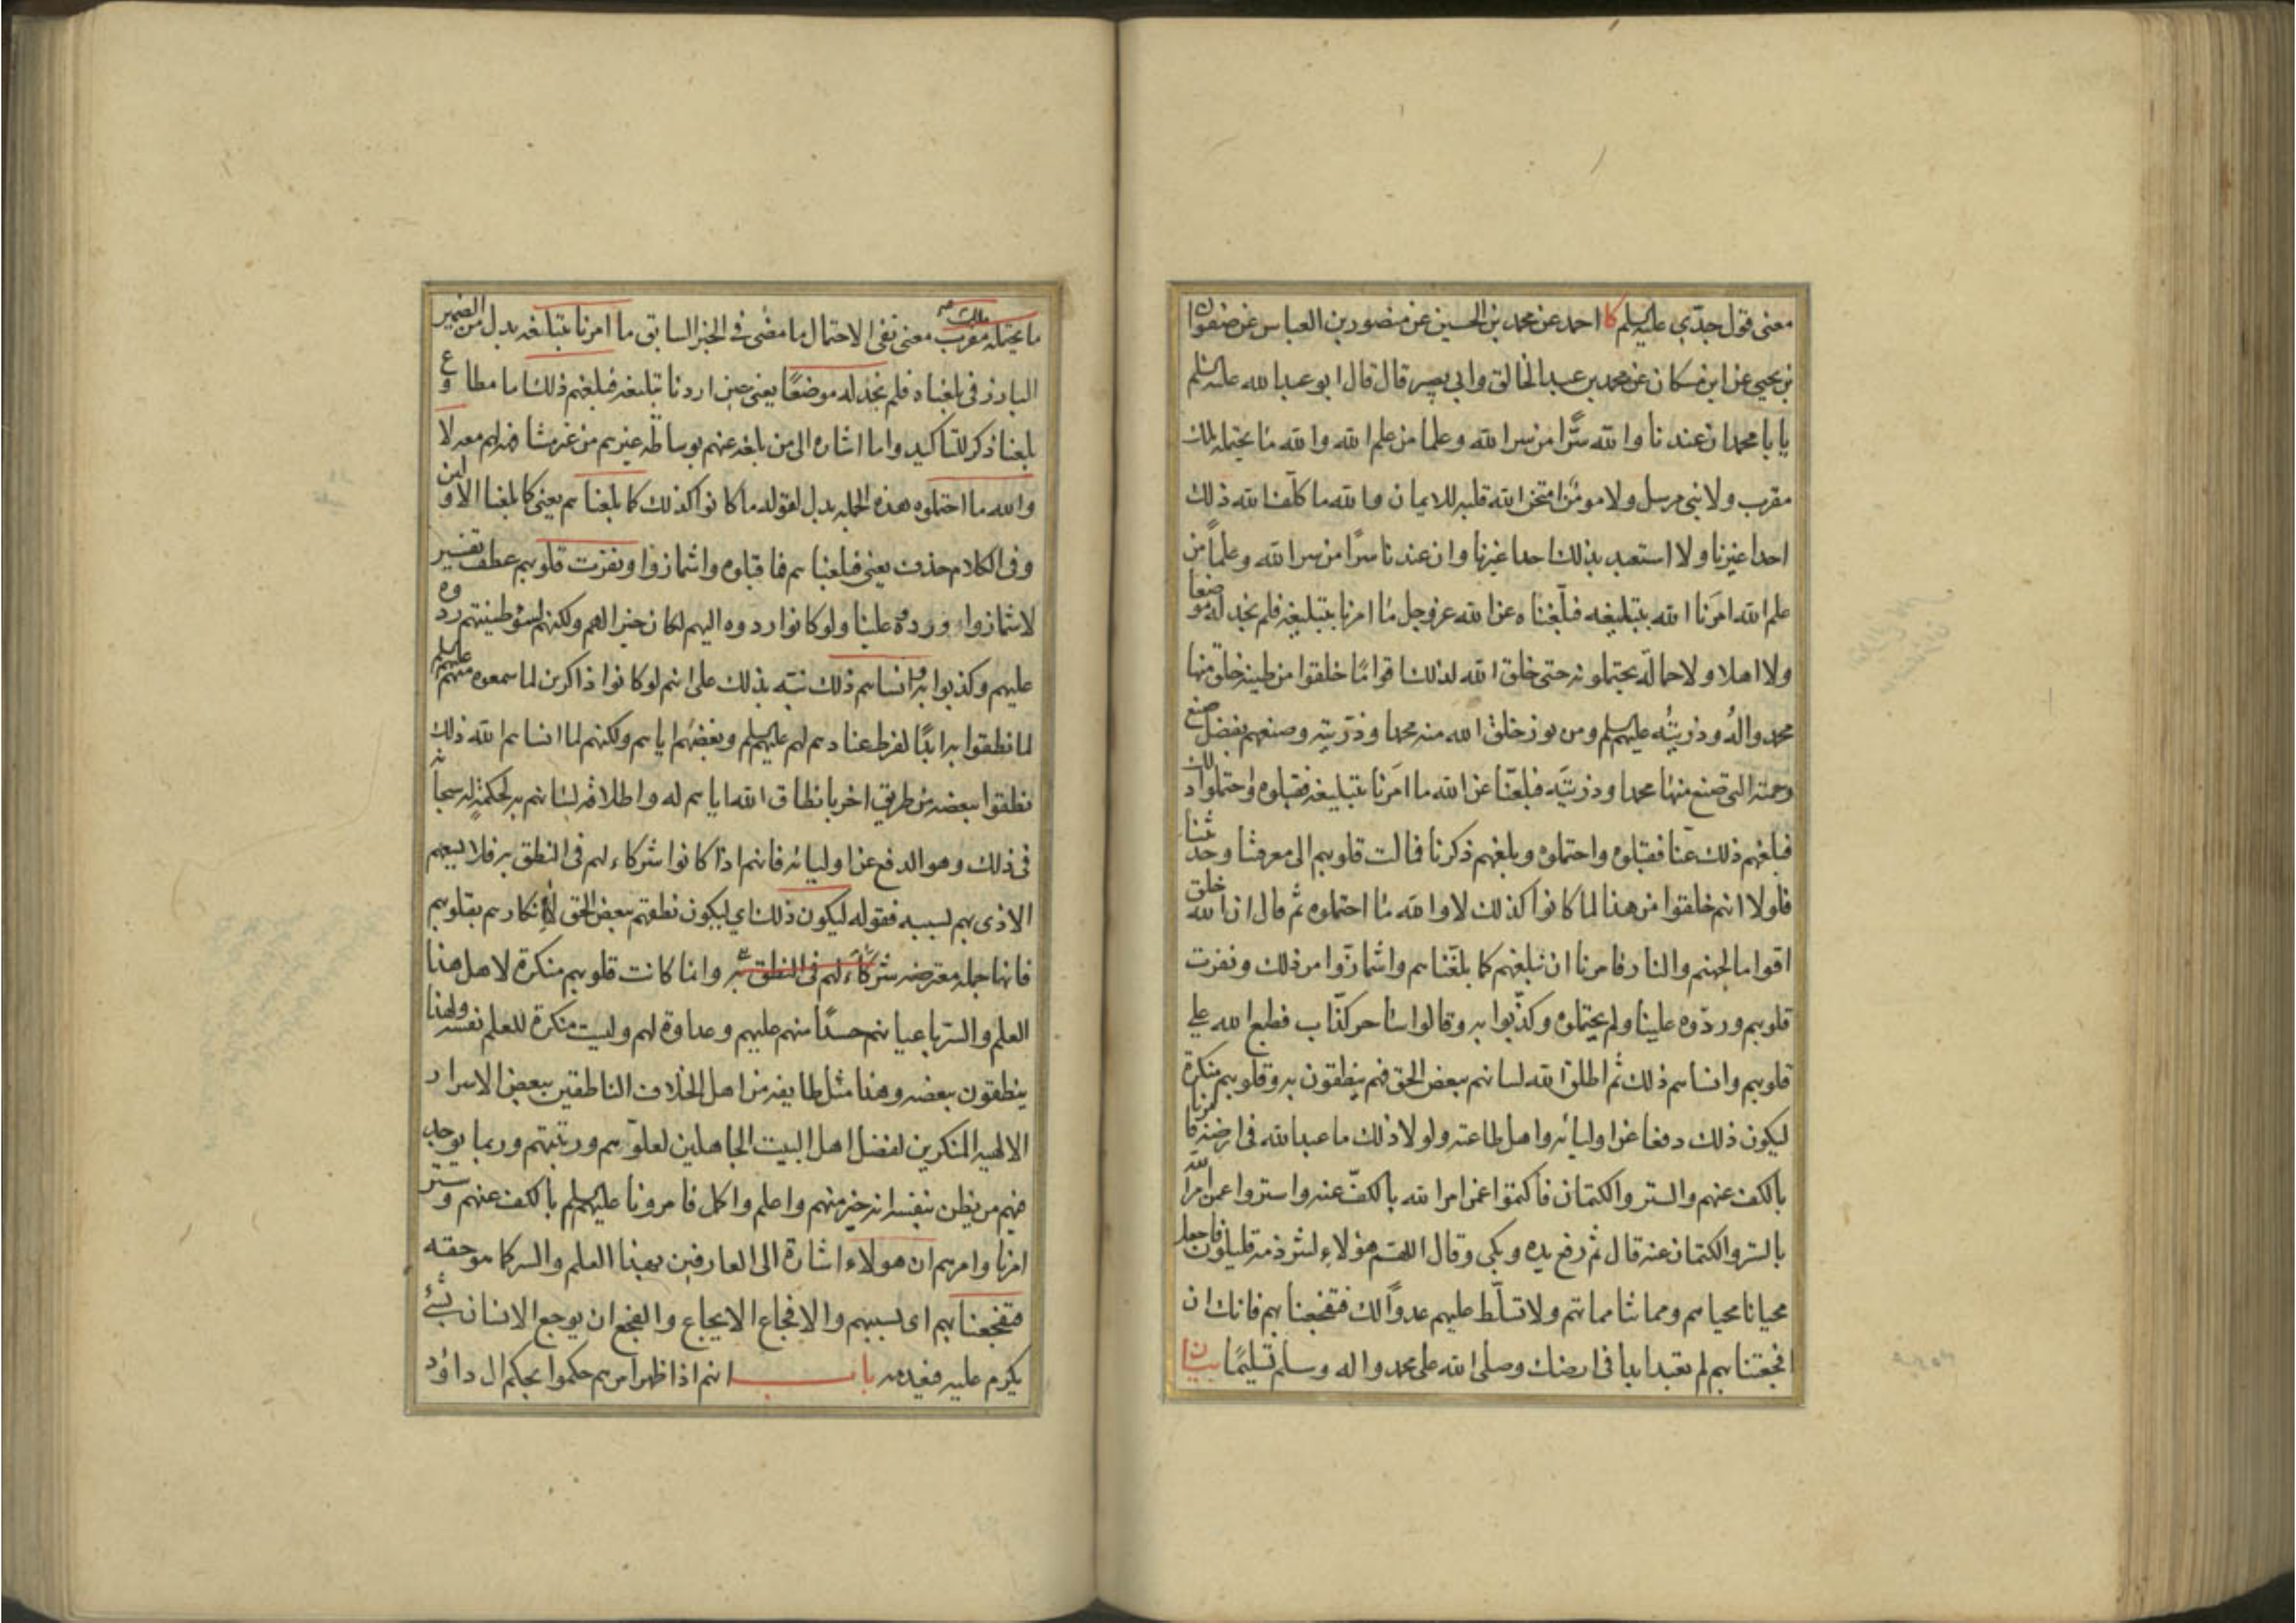 معنى قول جدّي عليه السلم كا احمد عن محمد بن الحسين عن منصور بن العباس عن صفوان
بن يحيى عن ابن مسكان عن محمد بن عبد الخالق وابي بصير قال قال ابو عبد الله عليه السلم
يا با محمد ان عندنا والله سرًّا من سر الله وعلما من علم الله والله ما يحتمله ملك
مقرب ولا نبي مرسل ولا مومن امتحن الله قلبه للايمان والله ما كلّف الله ذلك
احدا غيرنا ولا استعبد بذلك احدا غيرنا وان عندنا سرًا من سر الله وعلماً من
علم الله امَرنا الله بتبليغه فبلّغناه عن الله عز وجل ما امرنا بتبليغه فلم نجد له موضعا
ولا اهلا ولا حمالة يحتملونه حتى خلق الله لذلك اقوامًا خلقوا من طينة خلق منها
محمد والهُ وذريتُه عليهم السلم ومن نور خلق الله منه محمدا وذريته وصنعهم بفضل صنع
رحمته التي صنع منها محمدا وذريتَه فبلغّنا عن الله ما امَرنا بتبليغه فقبلوه واحتملوا ذلك
فبلغهم ذلك عنّا فقبلوه واحتملوه وبلغهم ذكرنا فمالت قلوبهم الى معرفتنا وحديثنا
فلولا انهم خلقوا من هذا لما كانوا كذلك لا والله ما احتملوه ثم قال ان الله خلق
اقواما لجهنم والنار فامرنا ان نبلغهم كما بلغّناهم واشمازّوا من ذلك ونفرت
قلوبهم وردّوه علينا ولم يحتملوه وكذّبوا به وقالوا ساحر كذّاب فطبع الله على
قلوبهم وانساهم ذلك ثم اطلق الله لسانهم ببعض الحق فهم ينطقون به وقلوبهم منكرة
ليكون ذلك دفعا عن اوليائه واهل طاعته ولولا ذلك ما عبد الله في ارضه فامرنا
بالكف عنهم والستر والكتمان فاكتموا عمن امر الله بالكفّ عنه واستروا عمن امر الله
بالستر والكتمان عنه قال ثم رفع يده وبكى وقال اللهم هؤلاء لشرذمة قليلون فاجعل
محيانا محياهم ومماتنا مماتهم ولا تسلّط عليهم عدوًّا لك فتفجعنا بهم فانك ان
افجعتنا بهم لم تعبد ابدا في ارضك وصلى الله على محمد واله وسلم تسليمًا بيان
ما يحتمله ملك مقرب معنى نفى الاحتمال ما مضى في الخبر السابق ما امرنا بتبليغه بدل من الضمير
البارز في بلغناه فلم نجد له موضعًا يعنى حين اردنا تبليغه فبلغهم ذلك اما مطاوع
بلغنا ذكر للتاكيد واما اشاره الى من بلغه عنهم بوساطة غيرهم من غير مشافهة لهم معه لا
والله ما احتملوه هذه الجملة بدل لقوله ما كانوا كذلك كما بلغناهم يعنى كما بلغنا الاولين
وفى الكلام حذف يعنى فبلغناهم فما قبلوه واشمازوا ونفرت قلوبهم عطف تفسير
لاشمازوا وردوه علينا ولو كانوا ردوه اليهم لكان خيرا لهم ولكنهم لسوء طينتهم ردوه
عليهم وكذبوا به وانساهم ذلك نبّه بذلك على انهم لو كانوا ذاكرين لما سمعوه منهم عليهم السلم
لما نطقوا به ابدًا لفرط عنادهم لهم عليهم السلم وبغضهم اياهم ولكنهم لما انساهم الله ذلك
نطقوا ببعضه من طريق اخر بانطاق الله اياهم له واطلاقه لسانهم به لحكمة له سبحانه
في ذلك وهو الدفع عن اوليائه فانهم اذا كانوا شركاء لهم في النطق به فلا يسعهم
الاذى بهم بسببه فقوله ليكون ذلك اي ليكون نطقهم ببعض الحق لا انكارهم بقلوبهم
فانها جملة معترضه شركاءَ لهم في النطق به وانما كانت قلوبهم منكرة لاهل هذا
العلم والسر باعيانهم حسدًا منهم عليهم وعداوة لهم وليست منكرة للعلم نفسه ولهذا
ينطقون ببعضه وهذا مثل طايفة من اهل الخلاف الناطقين ببعض الاسرار
الالهية المنكرين لفضل اهل البيت الجاهلين لعلوّهم ورتبتهم وربما يوجد
فيهم من يظن بنفسه انه خير منهم واعلم واكمل فامرونا عليهم السلم بالكف عنهم وستر
امرنا وامرهم ان هولاء اشارة الى العارفين بهذا العلم والسر كما هو حقه
فتفجعنا بهم اى بسببهم والافجاع الايجاع والفجع ان يوجع الانسان بشئ
يكرم عليه فيعدمه باب انهم اذا ظهر امرهم حكموا بحكم ال داود